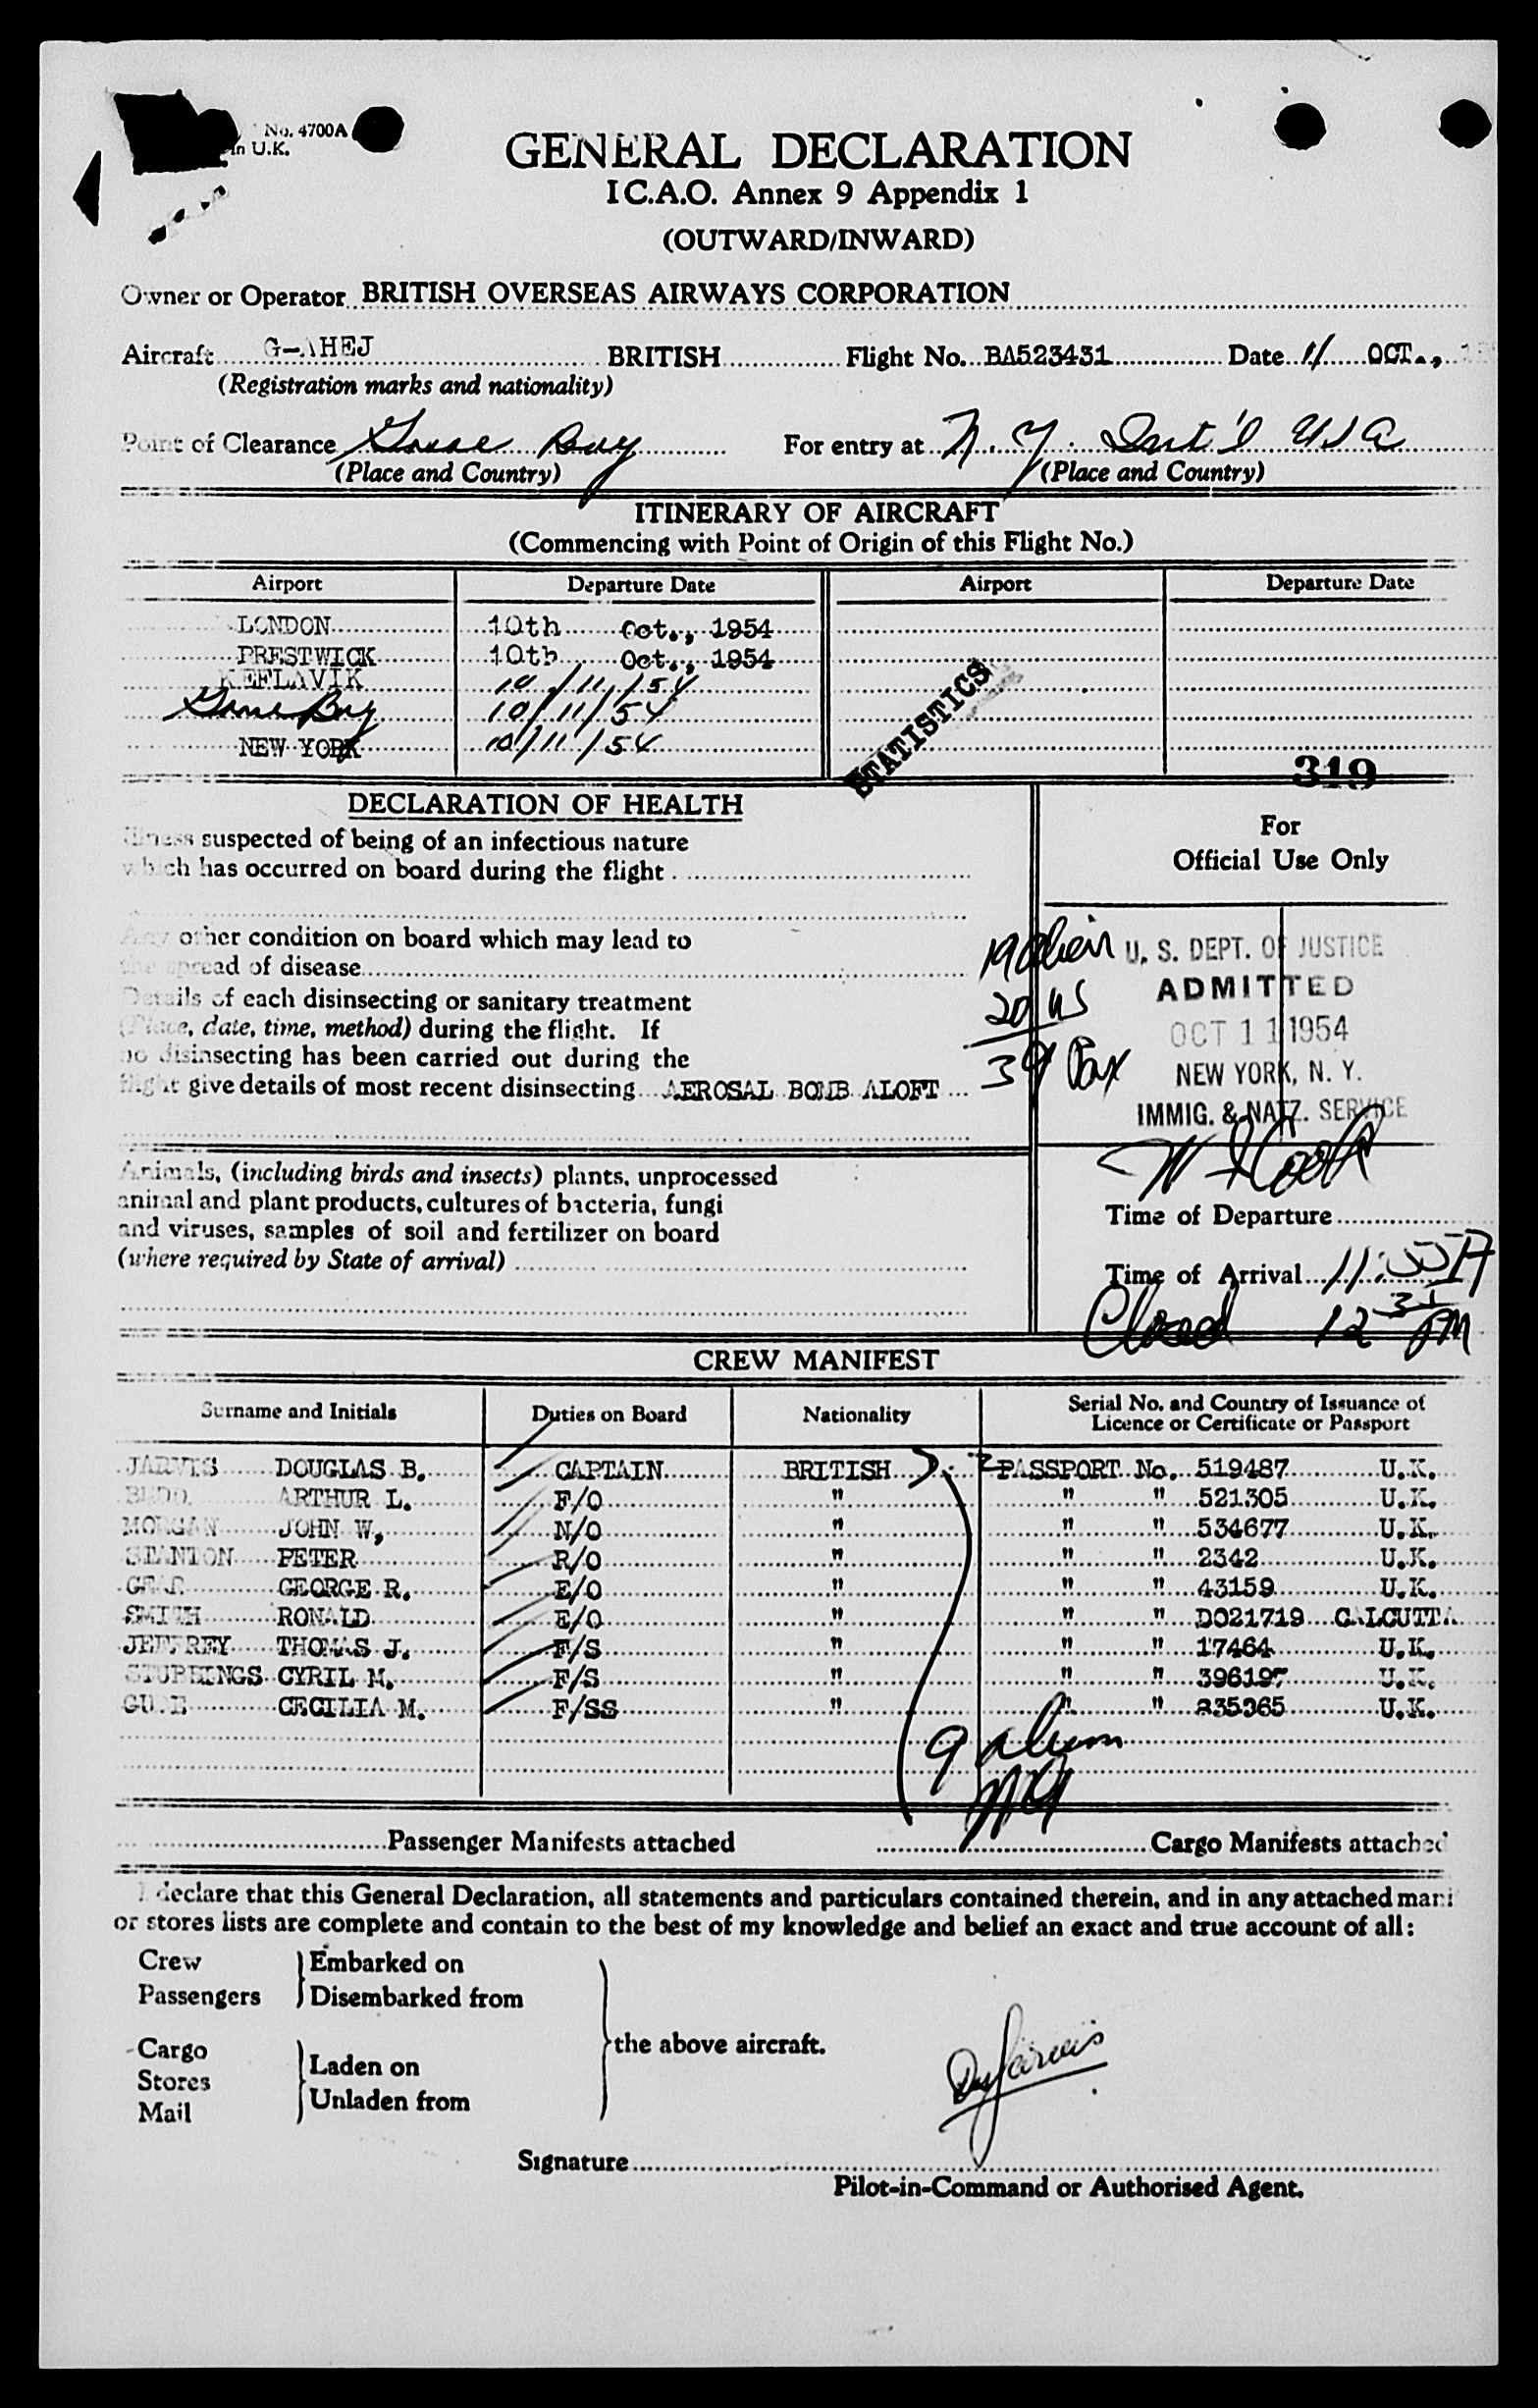 No. 4700A
in U.K.
GENERAL DECLARATION
I C.A.O. Annex 9 Appendix 1
(OUTWARD/INWARD)
Owner or Operator BRITISH OVERSEAS AIRWAYS CORPORATION
Aircraft G-AHEJ BRITISH Flight No. BA523431 Date 11 OCT.,
(Registration marks and nationality)
Point of Clearance Goose Bay For entry at N.Y. Int'l USA
(Place and Country) (Place and Country)
ITINERARY OF AIRCRAFT
(Commencing with Point of Origin of this Flight No.)
Airport Departure Date Airport Departure Date
LONDON 10th Oct., 1954
PRESTWICK 10th Oct., 1954
KEFLAVIK 10/11/54
Goose Bay 10/11/54
NEW YORK 10/11/54
STATISTICS
319
DECLARATION OF HEALTH
Illness suspected of being of an infectious nature
which has occurred on board during the flight
Any other condition on board which may lead to
the spread of disease
Details of each disinsecting or sanitary treatment
(Place, date, time, method) during the flight. If
no disinsecting has been carried out during the
flight give details of most recent disinsecting AEROSAL BOMB ALOFT
For
Official Use Only
19 alien
20 US
39 Pax
U. S. DEPT. OF JUSTICE
ADMITTED
OCT 11 1954
NEW YORK, N. Y.
IMMIG. & NATZ. SERVICE
Animals, (including birds and insects) plants, unprocessed
animal and plant products, cultures of bacteria, fungi
and viruses, samples of soil and fertilizer on board
(where required by State of arrival)
Time of Departure
Time of Arrival 11:55A
Closed 12 35 PM
CREW MANIFEST
Surname and Initials Duties on Board Nationality Serial No. and Country of Issuance of
Licence or Certificate or Passport
JARVIS DOUGLAS B. CAPTAIN BRITISH PASSPORT No. 519487 U.K.
ARTHUR L. F/O " " " 521305 U.K.
MORGAN JOHN W, N/O " " " 534677 U.K.
PETER R/O " " " 2342 U.K.
GEORGE R. E/O " " " 43159 U.K.
SMITH RONALD E/O " " " D021719 CALCUTTA
JEFFREY THOMAS J. F/S " " " 17464 U.K.
STUBBINGS CYRIL M. F/S " " " 396197 U.K.
CECILIA M. F/SS " " " 835365 U.K.
9 alien
Passenger Manifests attached Cargo Manifests attached
I declare that this General Declaration, all statements and particulars contained therein, and in any attached mani
or stores lists are complete and contain to the best of my knowledge and belief an exact and true account of all:
Crew Embarked on
Passengers Disembarked from
the above aircraft.
Cargo Laden on
Stores
Mail Unladen from
Signature
Pilot-in-Command or Authorised Agent.